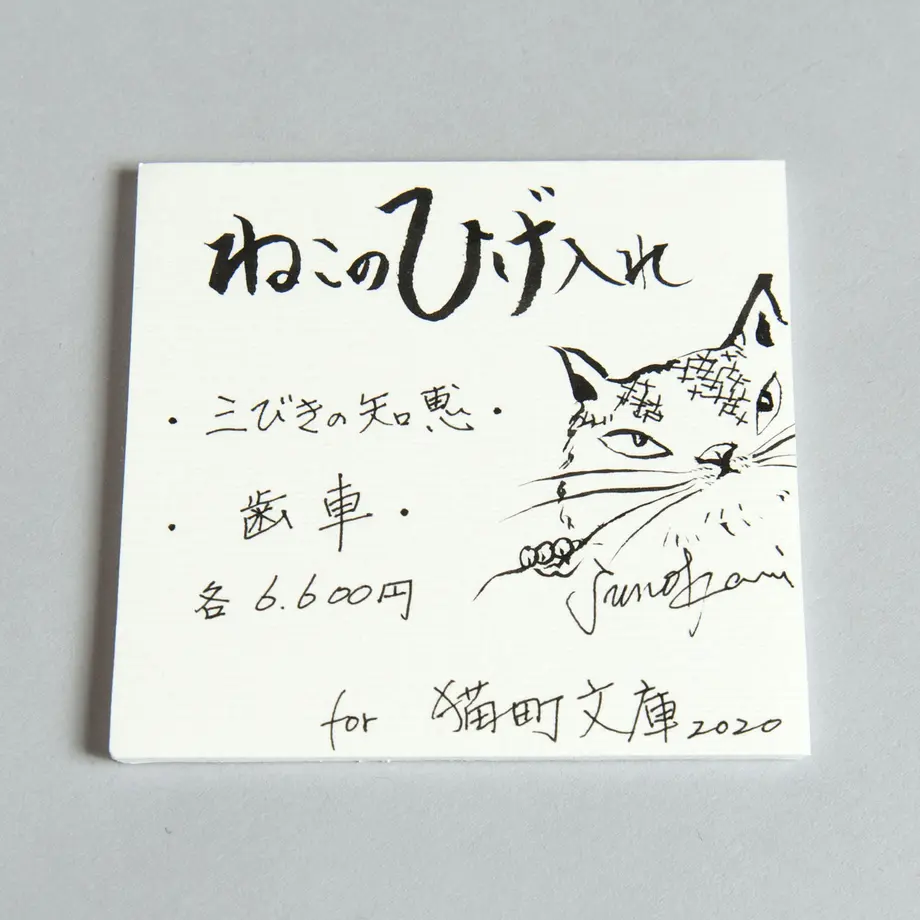 ねこのひげ入れ
・三びきの知恵・
・歯車・
各6.600円
for 猫町文庫2020